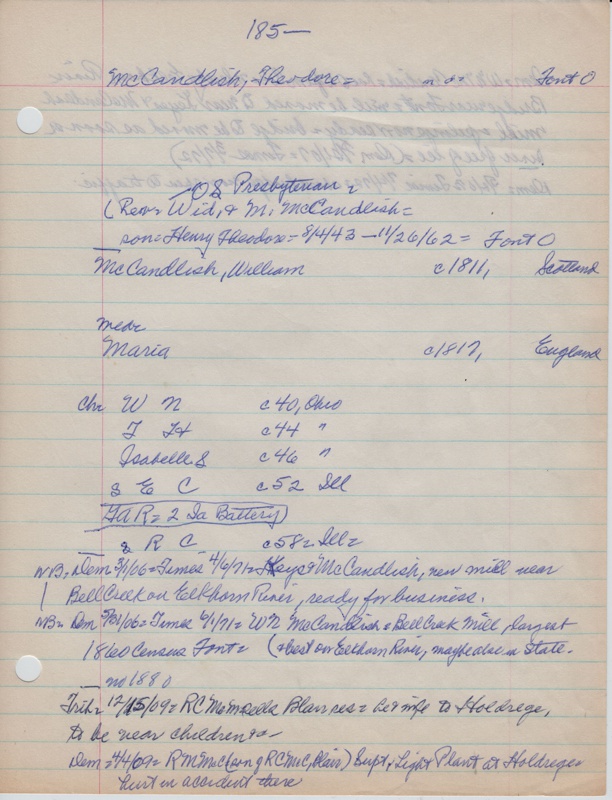 185—
McCandlish, Theodore = n d = Font O
OS Presbyterian =
(Rem = Wid, & M. McCandlish =
son = Henry Theodore = 8/4/43 — 11/26/62 = Font O
McCandlish, William c1811, Scotland
med =
Maria c1817, England
Chr W N c40, Ohio
T H c44 "
Isabelle S c46 "
s E C c52 Ill
GAR = 2 Ia Battery
& R C c58 = Ill =
NB = Dem = 3/1/06 = Times 4/6/71 = Keys & McCandlish, new mill near
Bell Creek on Elkhorn River, ready for business.
NB = Dem 5/31/06 = Times 6/1/71 = W N McCandlish = Bell Creek Mill, largest
1860 Census Font = (& best on Elkhorn River, maybe also in State.
no 1880
Trib = 12/15/09 = RC Mc Blair res = & wife to Holdrege,
to be near children =
Dem = 4/4/09 = R M Mc (son of RC McC, Blair) Supt, Light Plant at Holdrege =
hurt in accident there